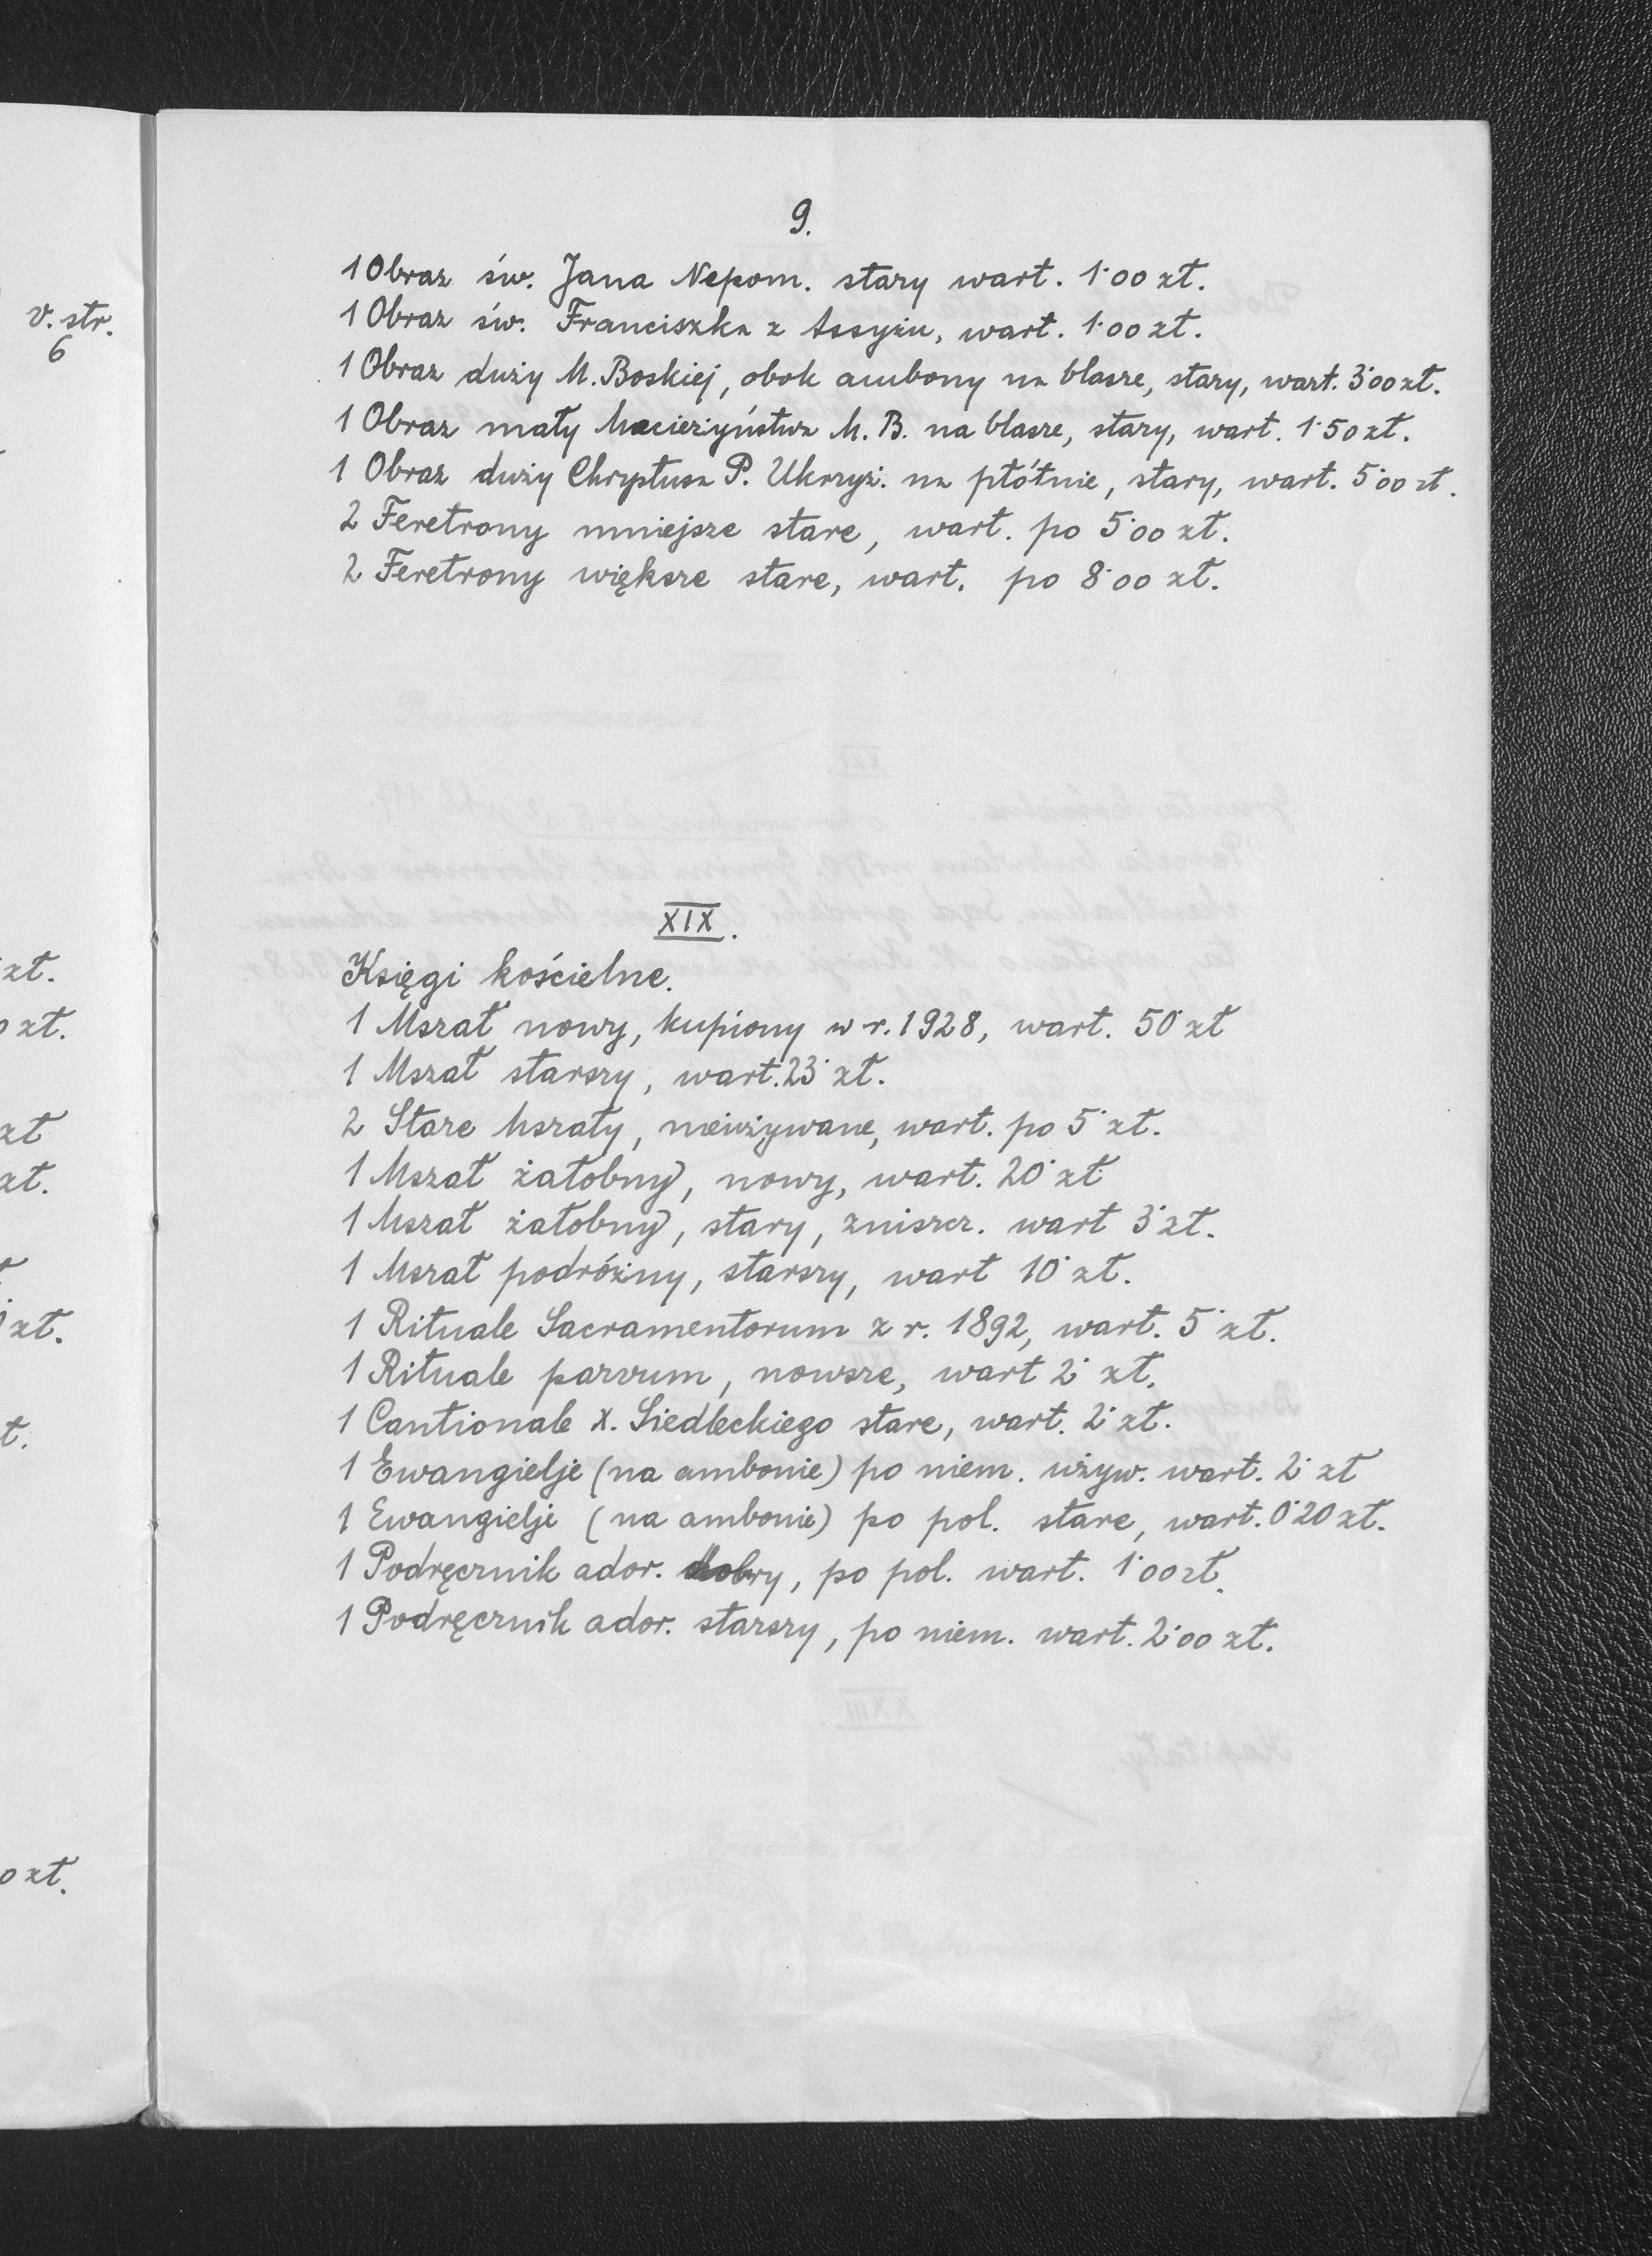 v. str.
6
zł.
0 zł.
zł
zł.
zł.
t.
0 zł.
9.
1 Obraz św. Jana Nepom. stary wart. 1·00 zł.
1 Obraz św. Franciszka z Assyżu, wart. 1·00 zł.
1 Obraz duży M. Boskiej, obok ambony na blasze, stary, wart. 3·00 zł.
1 Obraz mały Macierzyństwa M. B. na blasze, stary, wart. 1·50 zł.
1 Obraz duży Chrystusa P. Ukrzyż. na płótnie, stary, wart. 5·00 zł.
2 Feretrony mniejsze stare, wart. po 5·00 zł.
2 Feretrony większe stare, wart. po 8·00 zł.
XIX.
Księgi kościelne.
1 Mszał nowy, kupiony w r. 1928, wart. 50· zł
1 Mszał starszy, wart. 23· zł.
2 Stare Mszały, nieużywane, wart. po 5· zł.
1 Mszał żałobny, nowy, wart. 20· zł
1 Mszał żałobny, stary, zniszcz. wart 3· zł.
1 Mszał podróżny, starszy, wart 10· zł.
1 Rituale Sacramentorum z r. 1892, wart. 5· zł.
1 Rituale parvum, nowsze, wart 2· zł.
1 Cantionale X. Siedleckiego stare, wart. 2· zł.
1 Ewangielje (na ambonie) po niem. używ. wart. 2· zł
1 Ewangielje (na ambonie) po pol. stare, wart. 0·20 zł.
1 Podręcznik ador. dobry, po pol. wart. 1·00 zł.
1 Podręcznik ador. starszy, po niem. wart. 2·00 zł.